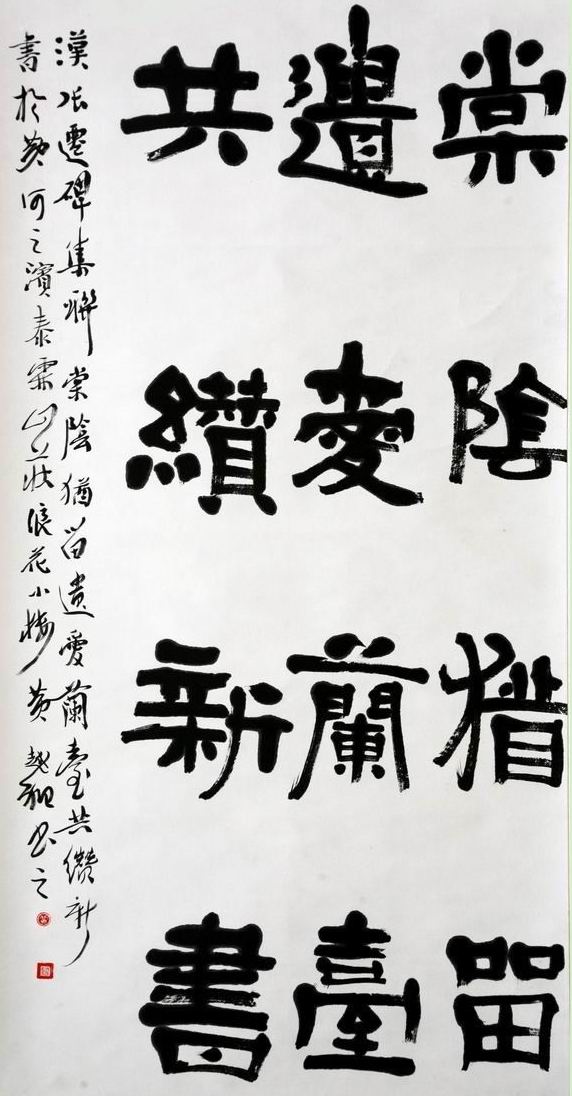 棠陰猶留
遺愛蘭臺
共纘新書
漢张遷碑集聯棠陰猶留遺愛蘭臺共纘新
書於黄河之濱泰霖山莊浪花小黄书之